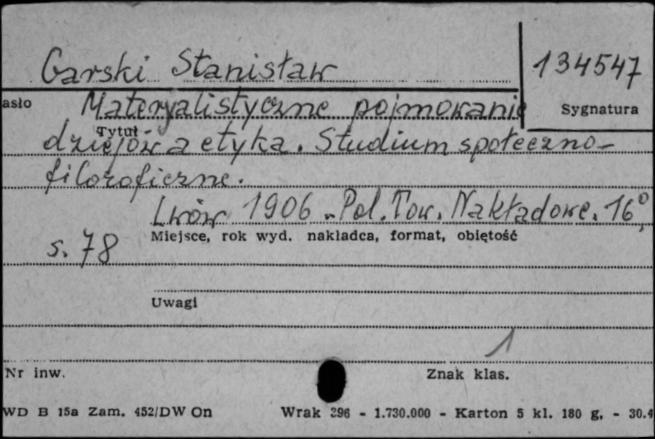 Garski Stanisław
134547
asło
Sygnatura
Materyalistyczne pojmowanie
Tytuł
dziejów a etyka. Studium społeczno-
filozoficzne.
Lwów 1906. Pol. Tow. Nakładowe. 16°,
Miejsce, rok wyd. nakładca, format, objętość
s. 78
Uwagi
1
Nr inw.
Znak klas.
WD B 15a Zam. 452/DW On Wrak 296 - 1.730.000 - Karton 5 kl. 180 g. - 30.4